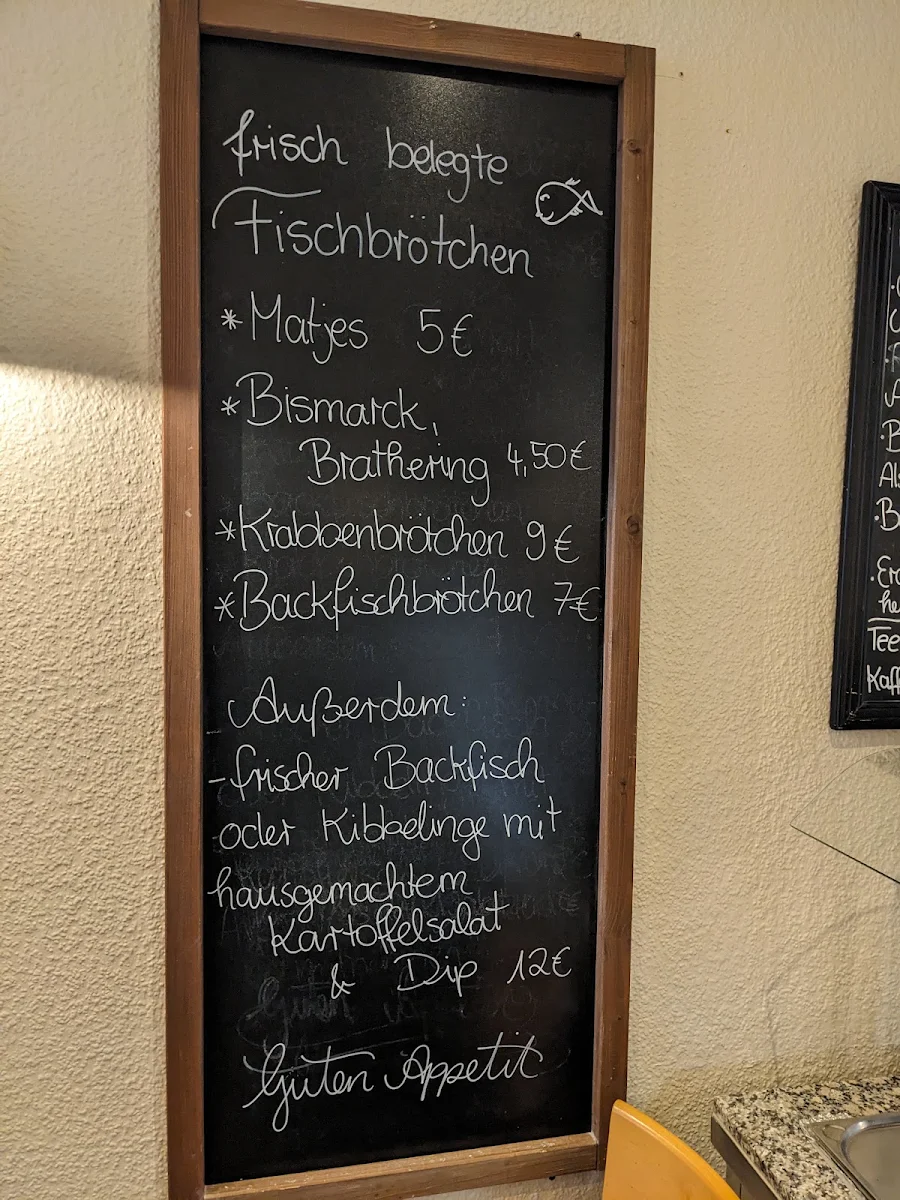 frisch belegte
Fischbrötchen
*Matjes 5€
*Bismarck,
Brathering 4,50€
*Krabbenbrötchen 9€
*Backfischbrötchen 7€
Außerdem:
-frischer Backfisch
oder Kibbelinge mit
hausgemachtem
Kartoffelsalat
& Dip 12€
Guten Appetit
Tee